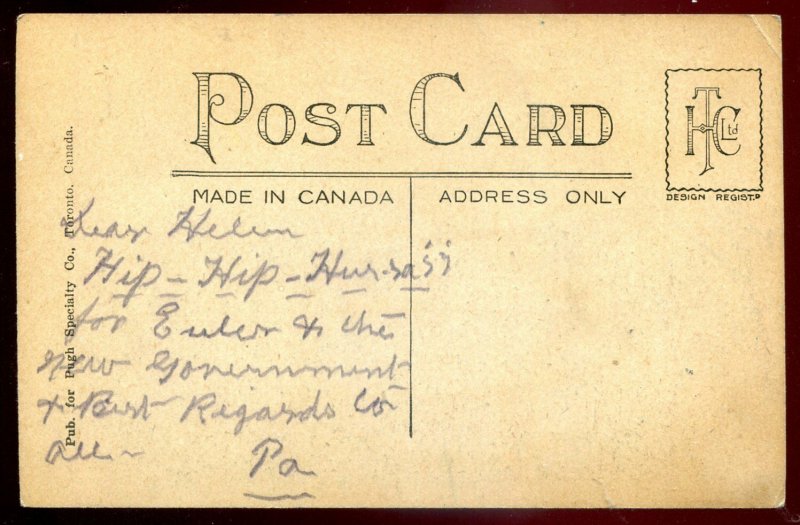 POST CARD
HTC Ltd
DESIGN REGIST.D
MADE IN CANADA
ADDRESS ONLY
Pub. for Pugh Specialty Co., Toronto. Canada.
Dear Helen
Hip - Hip - Hurra!!
for Euler & the
new Government
& Best Regards to
all -
Pa